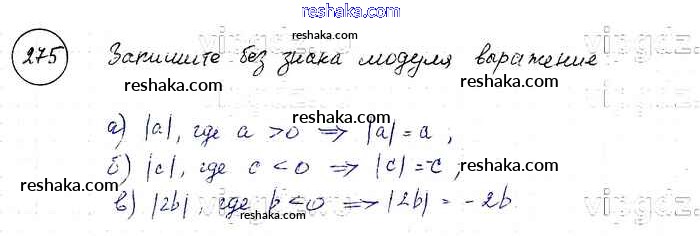 reshaka.com
275 Запишите без знака модуля выражение
reshaka.com reshaka.com reshaka.com
а) |a|, где a > 0 ⟹ |a| = a ;
б) |c|, где c < 0 ⟹ |c| = -c ;
reshaka.com reshaka.com reshaka.com
в) |2b|, где b < 0 ⟹ |2b| = -2b
reshaka.com